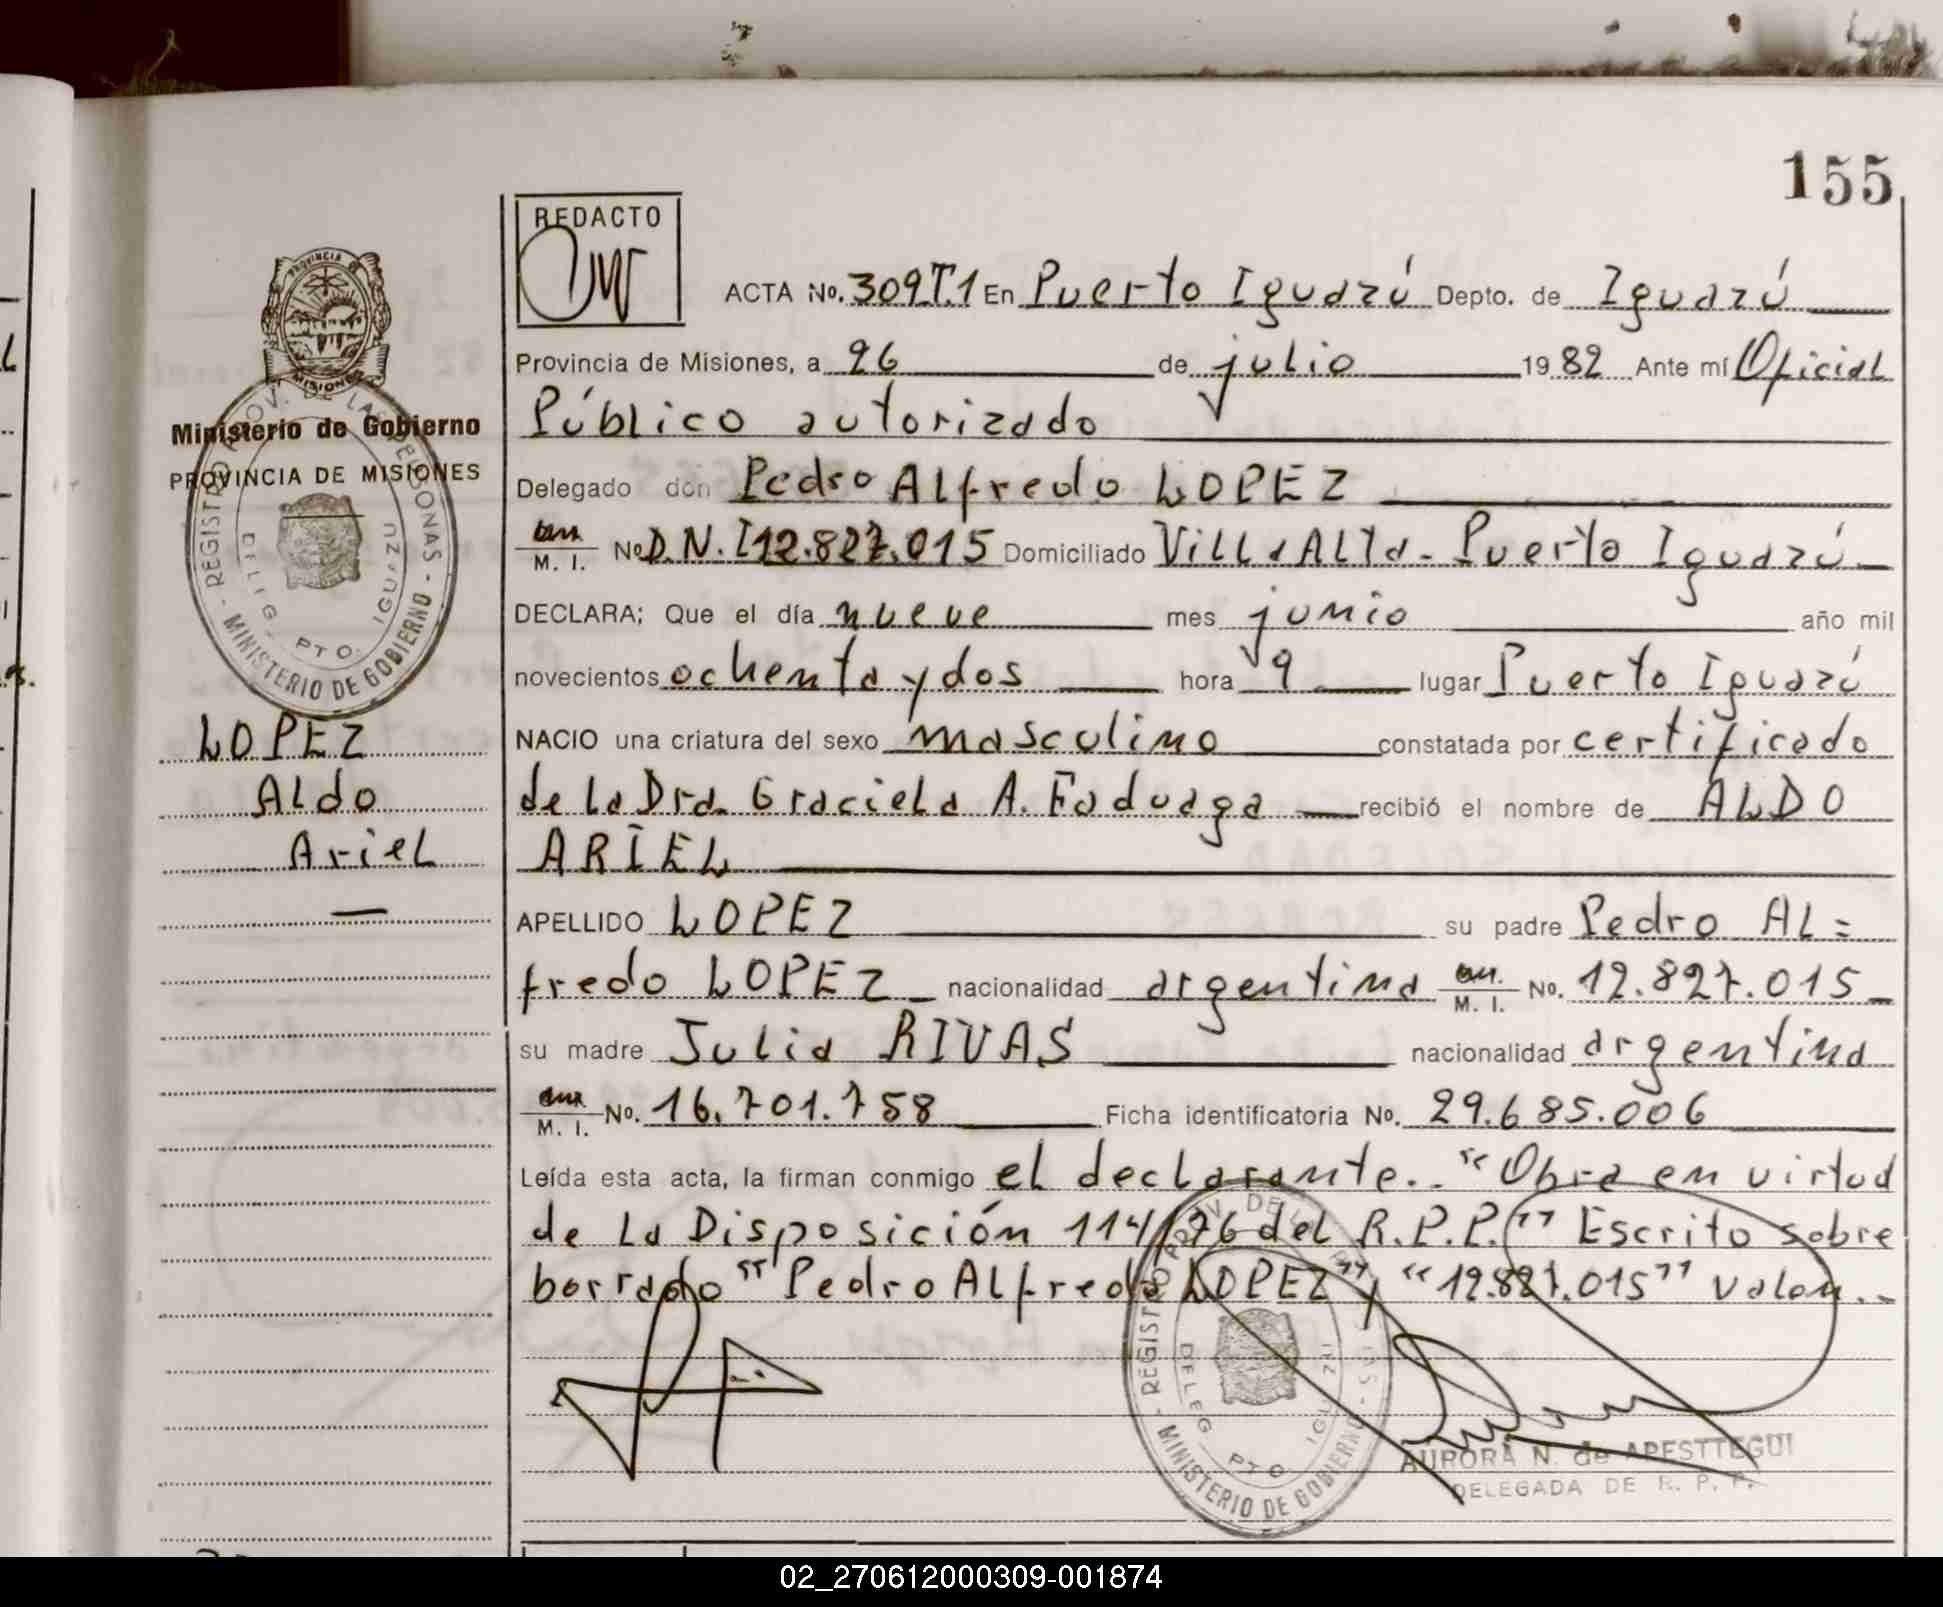 155
REDACTO
ACTA No. 309T.1 En Puerto Iguazú Depto. de Iguazú
PROVINCIA DE MISIONES
Provincia de Misiones, a 26 de julio 1982 Ante mí Oficial
Público autorizado
Ministerio de Gobierno
PROVINCIA DE MISIONES
Delegado don Pedro ALfredo LOPEZ
M. I. No D.N.I 12.827.015 Domiciliado Villa ALta - Puerto Iguazú
DECLARA; Que el día nueve mes junio año mil
novecientos ochenta y dos hora 9 lugar Puerto Iguazú
REGISTRO PROV. DE LAS PERSONAS - MINISTERIO DE GOBIERNO -
DELEG. PTO. IGUAZU
LOPEZ
Aldo
Ariel
NACIO una criatura del sexo masculino constatada por certificado
de la Dra. Graciela A. Faduaga recibió el nombre de ALDO
ARIEL
APELLIDO LOPEZ su padre Pedro AL=
fredo LOPEZ nacionalidad argentina M. I. No. 12.827.015
su madre Julia RIVAS nacionalidad argentina
M. I. No. 16.701.758 Ficha identificatoria No. 29.685.006
Leída esta acta, la firman conmigo el declarante.. "Obra en virtud
de La Disposición 114/76 del R.P.P." Escrito sobre
borrado "Pedro ALfredo LOPEZ", "12.827.015" Valen..
REGISTRO PROV. DE LAS PERSONAS - MINISTERIO DE GOBIERNO
DELEG PTO. IGUAZU
AURORA N. de APESTTEGUI
DELEGADA DE R. P. P.
02_270612000309-001874